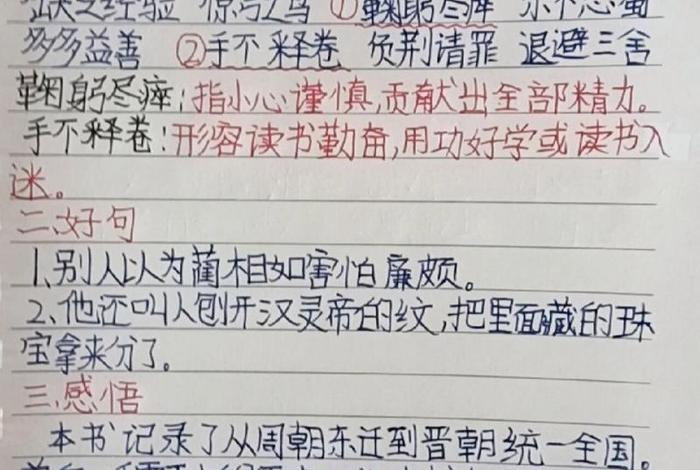 缺乏经验 惊弓之鸟 ①鞠躬尽瘁 乐不思蜀
多多益善 ②手不释卷 负荆请罪 退避三舍
鞠躬尽瘁:指小心谨慎,贡献出全部精力。
手不释卷:形容读书勤奋,用功好学或读书入
迷。
二、好句
1、别人以为蔺相如害怕廉颇。
2、他还叫人刨开汉灵帝的纹,把里面藏的珠
宝拿来分了。
三、感悟
本书记录了从周朝东迁到晋朝统一全国。